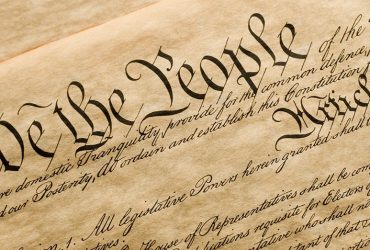 We the People of the
re domestic Tranquility, provide for the common defence,
d our Posterity, do ordain and establish this Constitution f
Article
1. All legislative Powers herein granted shall b
House of Representatives shall be comp
lifications requisite for Electors of
tative who shall not
State